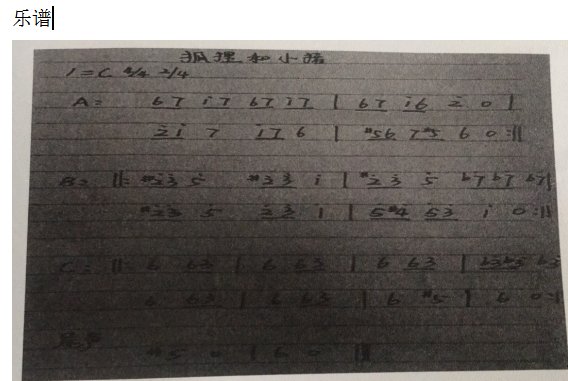 乐谱
狐狸和小猪
1=C 4/4 2/4
A: 67 i7 67 i7 | 67 i6 2 0 |
2i 7 i7 6 | #56 7#5 6 0 :||
B: ||: #23 5 #23 i | #23 5 b7 b7 b7 |
#23 5 23 1 | 5#4 53 i 0 :||
C: ||: 6 63 | 6 63 | 6 63 |
6 63 | 6 63 | 6 #5 | 6 0 :||
#5 0 | 6 0 ||